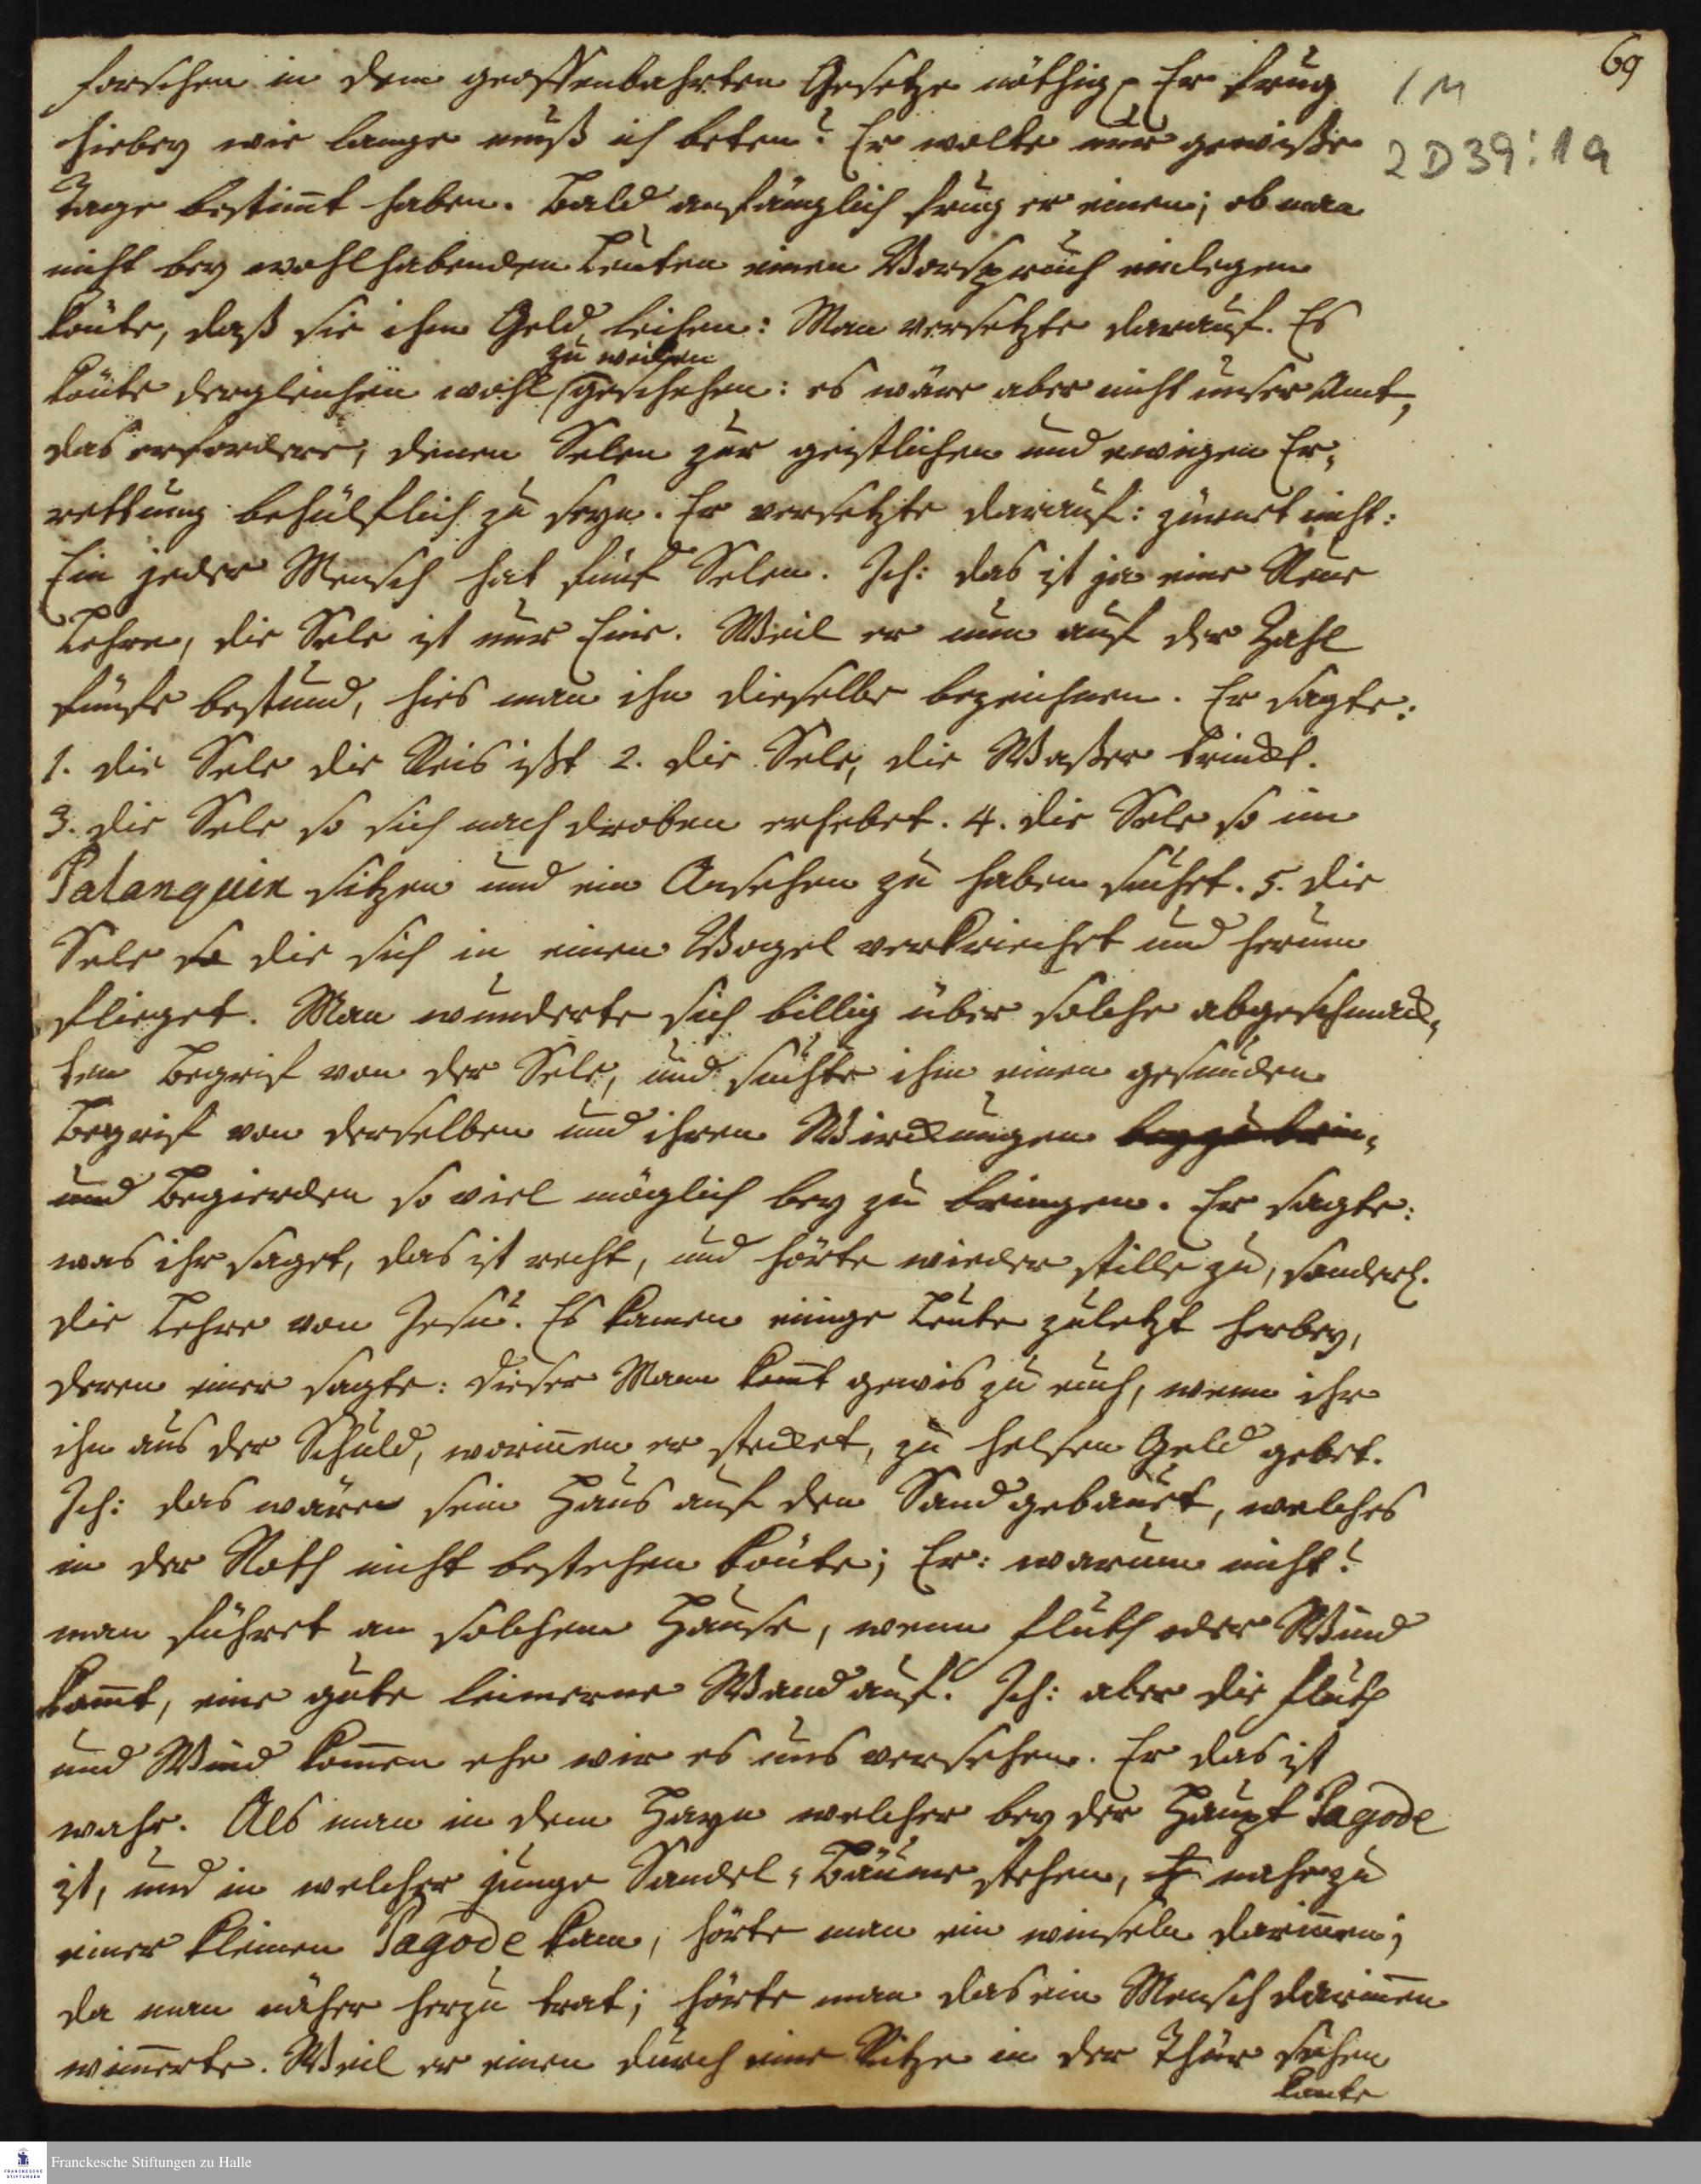 69
1 M
2 D 39:19
forschen in dem geoffenbahrten Gesetze nöthig. Er frug
hiebey wie lange muß ich beten? Er wolte nur gewiße
Tage bestim̄t haben. Bald anfänglich frug er einen; ob man
nicht bey wohlhabenden Leuten einen Vorspruch einlegen
kön̄te, daß sie ihm Geld leihen: Man versetzte darauf. Es
zu weilen
kön̄te dergleichen wohl geschehen: es wäre aber nicht unser Amt,
das erfordere, denen Selen zur geistlichen und ewigen Er-
rettung behülflich zu seyn. Er versetzte darauf: zürnet nicht:
Ein jeder Mensch hat fünf Selen. Ich: das ist ja eine Neue
Lehre, die Sele ist nur Eine. Weil er nun auf der Zahl
fünfe bestund, hies man ihn dieselbe bezeichnen. Er sagte:
1. die Sele die Reis ißt 2. die Sele, die Waßer trinckt.
3. die Sele so sich nach droben erhebet. 4. die Sele so im
Palanquin sitzen und ein Ansehen zu haben suchet. 5. die
Sele so die sich in einen Vogel verkriechet und herum
flieget. Man wunderte sich billig über solche abgeschmack-
ten Begrif von der Sele, und suchte ihm einen gesunden
Begrif von derselben und ihren Wirckungen beyzubrin-
und Begierden so viel möglich bey zu bringen. Er sagte:
was ihr saget, das ist recht, und hörte wieder stille zu, sonderl.
die Lehre von Jesu. Es kamen einige Leute zuletzt herbey,
deren einer sagte: dieser Mann kom̄t gewis zu euch, wenn ihr
ihn aus der Schuld, worin̄en er stecket, zu helfen Geld gebet.
Ich: das wäre sein Haus auf den Sand gebauet, welches
in der Noth nicht bestehen kön̄te; Er: warum nicht?
man führet an solchem Hause, wenn Fluth oder Wind
kom̄t, eine gute leimerne Wand auf. Ich: aber die Fluth
und Wind kom̄en ehe wir es uns versehen. Er das ist
wahr. Als man in dem Hayn welcher bey der Haupt Pagode
ist, und in welcher junge Sandel-Bäume stehen, nahe zu
einer kleinen Pagode kam, hörte man ein winseln darin̄en;
da man näher herzu trat; hörte man das ein Mensch darin̄en
wim̄erte. Weil er einen durch eine Ritze in der Thür sehen
konte
Franckesche Stiftungen zu Halle